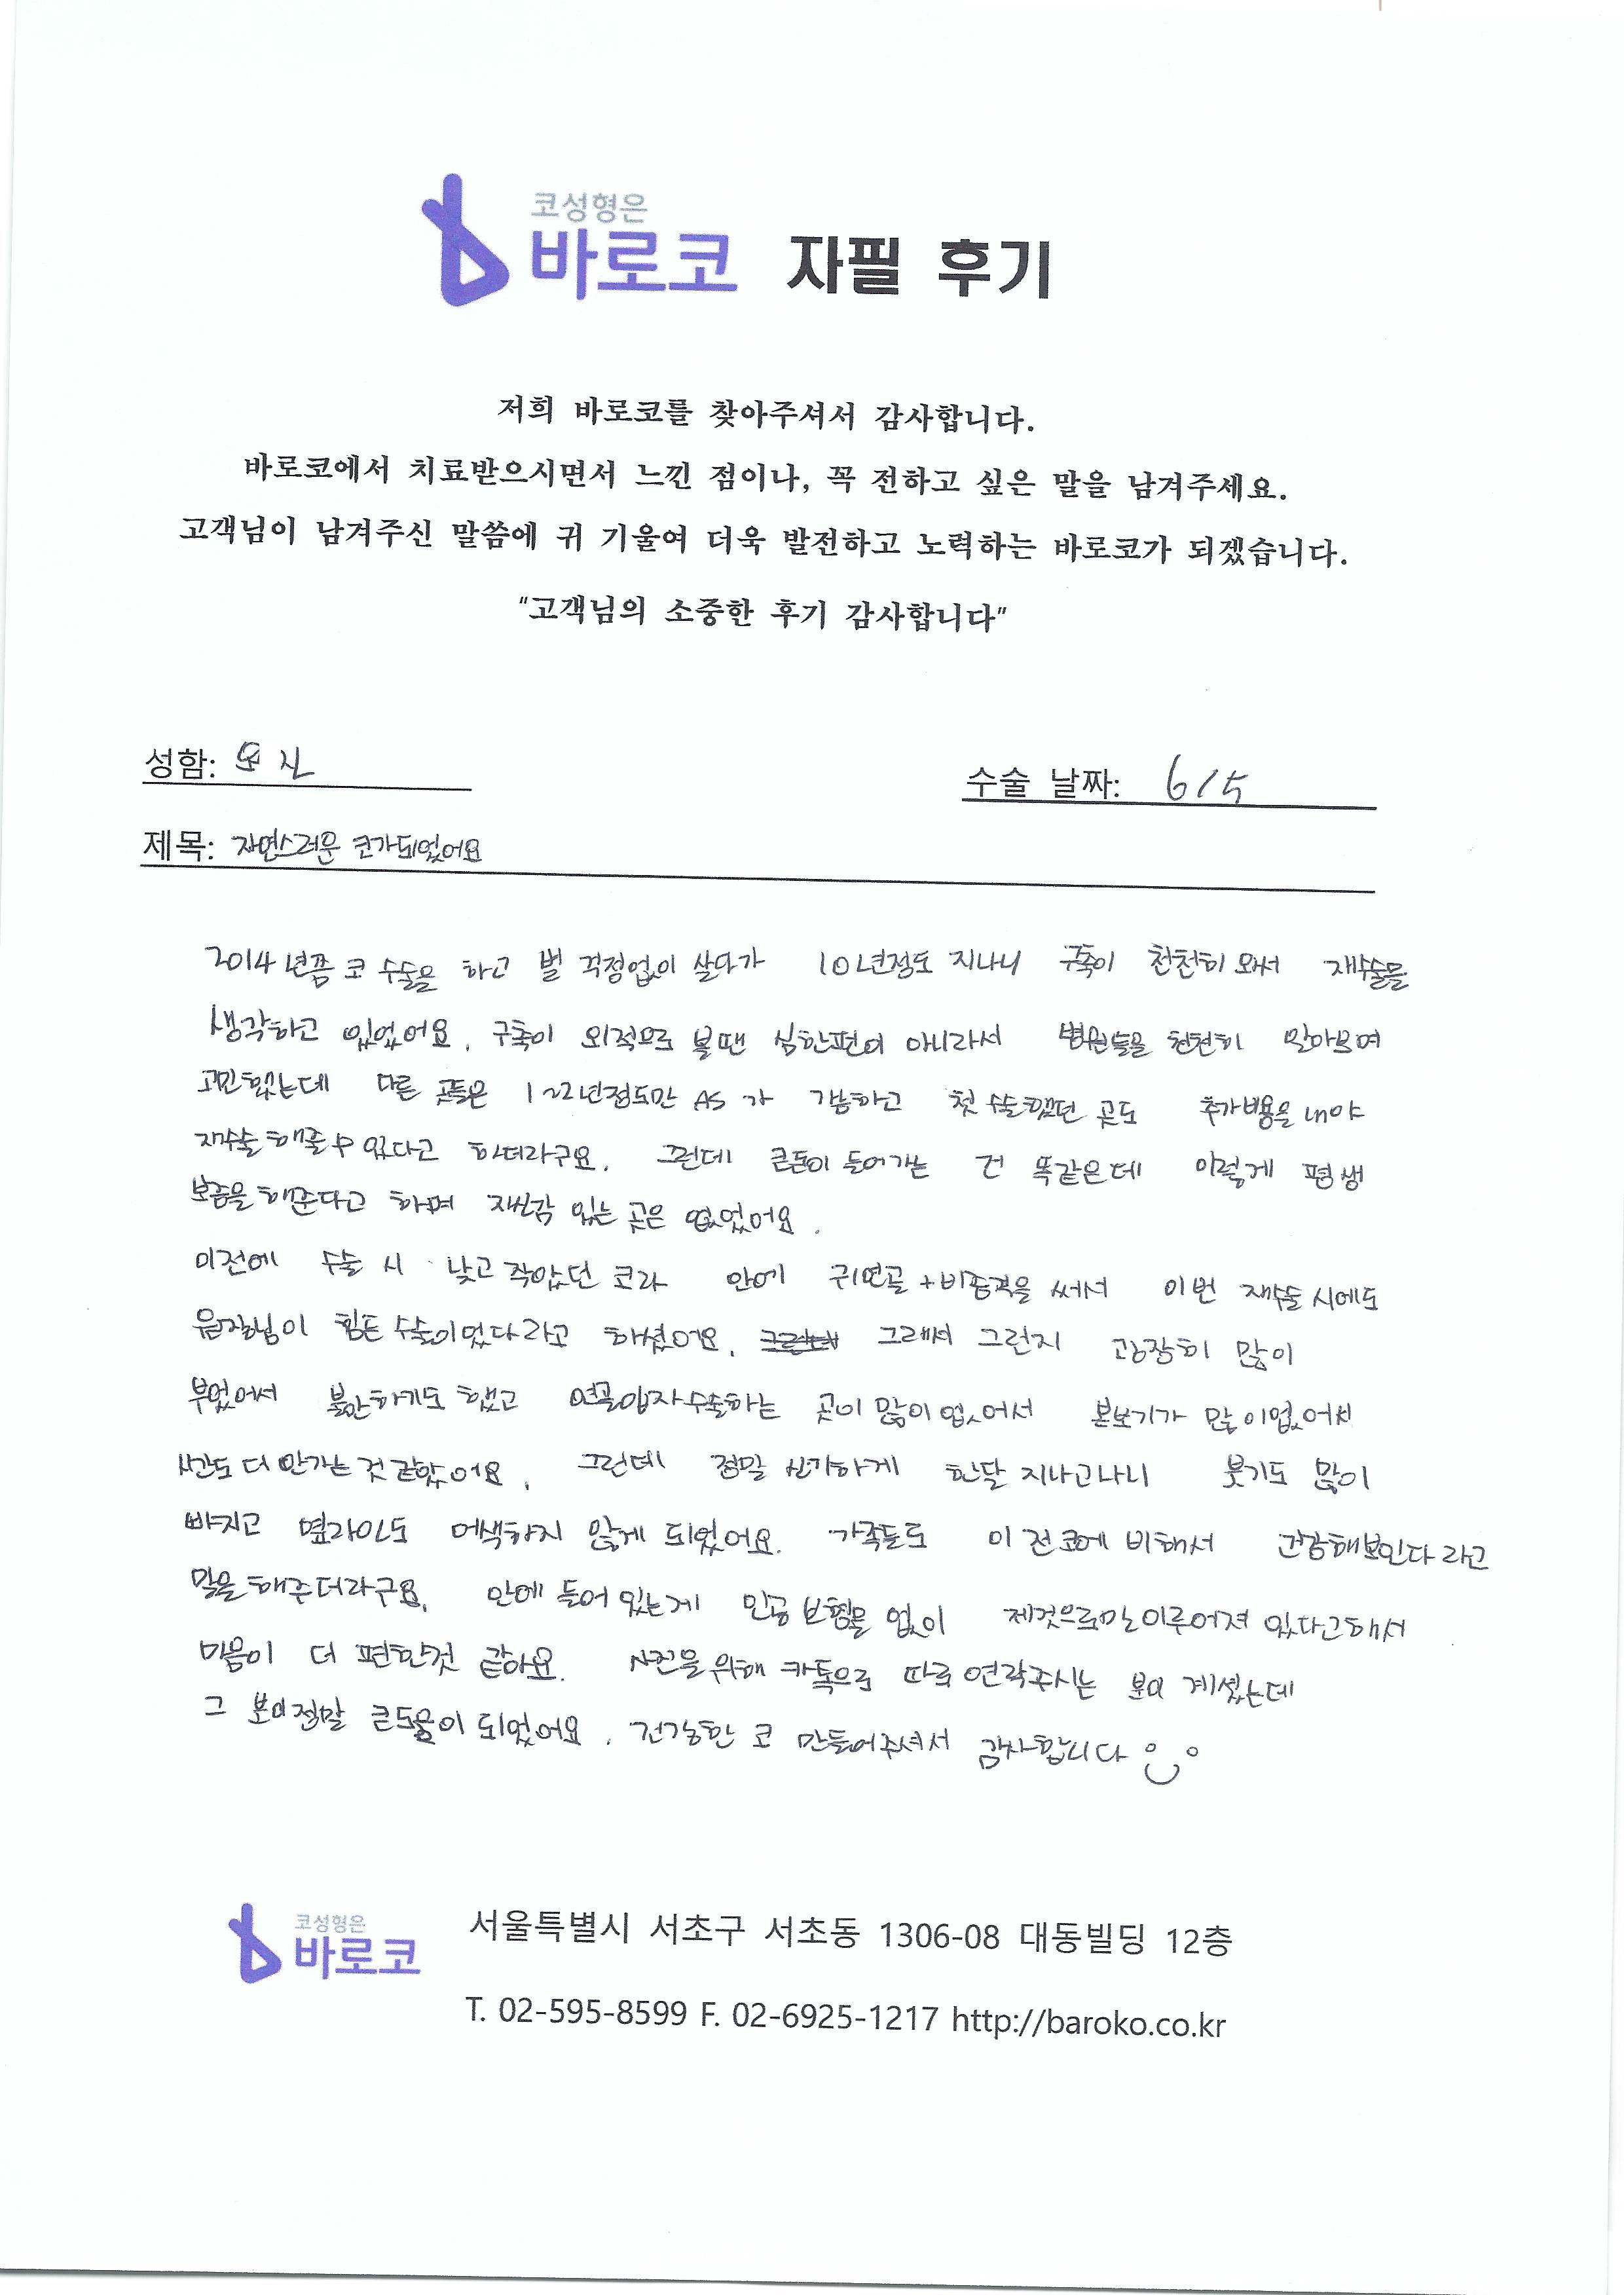 코성형은
바로코 자필 후기
저희 바로코를 찾아주셔서 감사합니다.
바로코에서 치료받으시면서 느낀 점이나, 꼭 전하고 싶은 말을 남겨주세요.
고객님이 남겨주신 말씀에 귀 기울여 더욱 발전하고 노력하는 바로코가 되겠습니다.
“고객님의 소중한 후기 감사합니다”
성함: 수술 날짜: 6/5
제목: 자연스러운 코가되었어요
2014년쯤 코 수술을 하고 별 걱정없이 살다가 10년정도 지나니 구축이 천천히 와서 재수술을
생각하고 있었어요. 구축이 외적으로 볼땐 심한편이 아니라서 병원들을 천천히 알아보며
고민했는데 다른 곳들은 1~2년정도만 AS가 가능하고 첫 수술했던 곳도 추가비용을 내야
재수술 해줄 수 있다고 하더라구요. 그런데 큰돈이 들어가는 건 똑같은데 이렇게 평생
보증을 해준다고 하며 자신감 있는 곳은 없었어요.
이전에 수술 시 낮고 작았던 코라 안에 귀연골+비중격을 써서 이번 재수술 시에도
원장님이 힘든 수술이었다라고 하셨어요. 그래서 그런지 굉장히 많이
부었어서 불안하기도 했고 연골입자수술하는 곳이 많이 없어서 본보기가 많이없어서
시간도 더 안가는 것 같았어요. 그런데 정말 신기하게 한달 지나고나니 붓기도 많이
빠지고 옆라인도 어색하지 않게 되었어요. 가족들도 이전코에 비해서 건강해보인다라고
말을 해주더라구요. 안에 들어있는게 인공 보형물 없이 제것으로만 이루어져 있다고해서
마음이 더 편한것 같아요. 사진을 위해 카톡으로 따로 연락주시는 분이 계셨는데
그 분이 정말 큰도움이 되었어요. 건강한 코 만들어주셔서 감사합니다
코성형은
바로코
서울특별시 서초구 서초동 1306-08 대동빌딩 12층
T. 02-595-8599 F. 02-6925-1217 http://baroko.co.kr